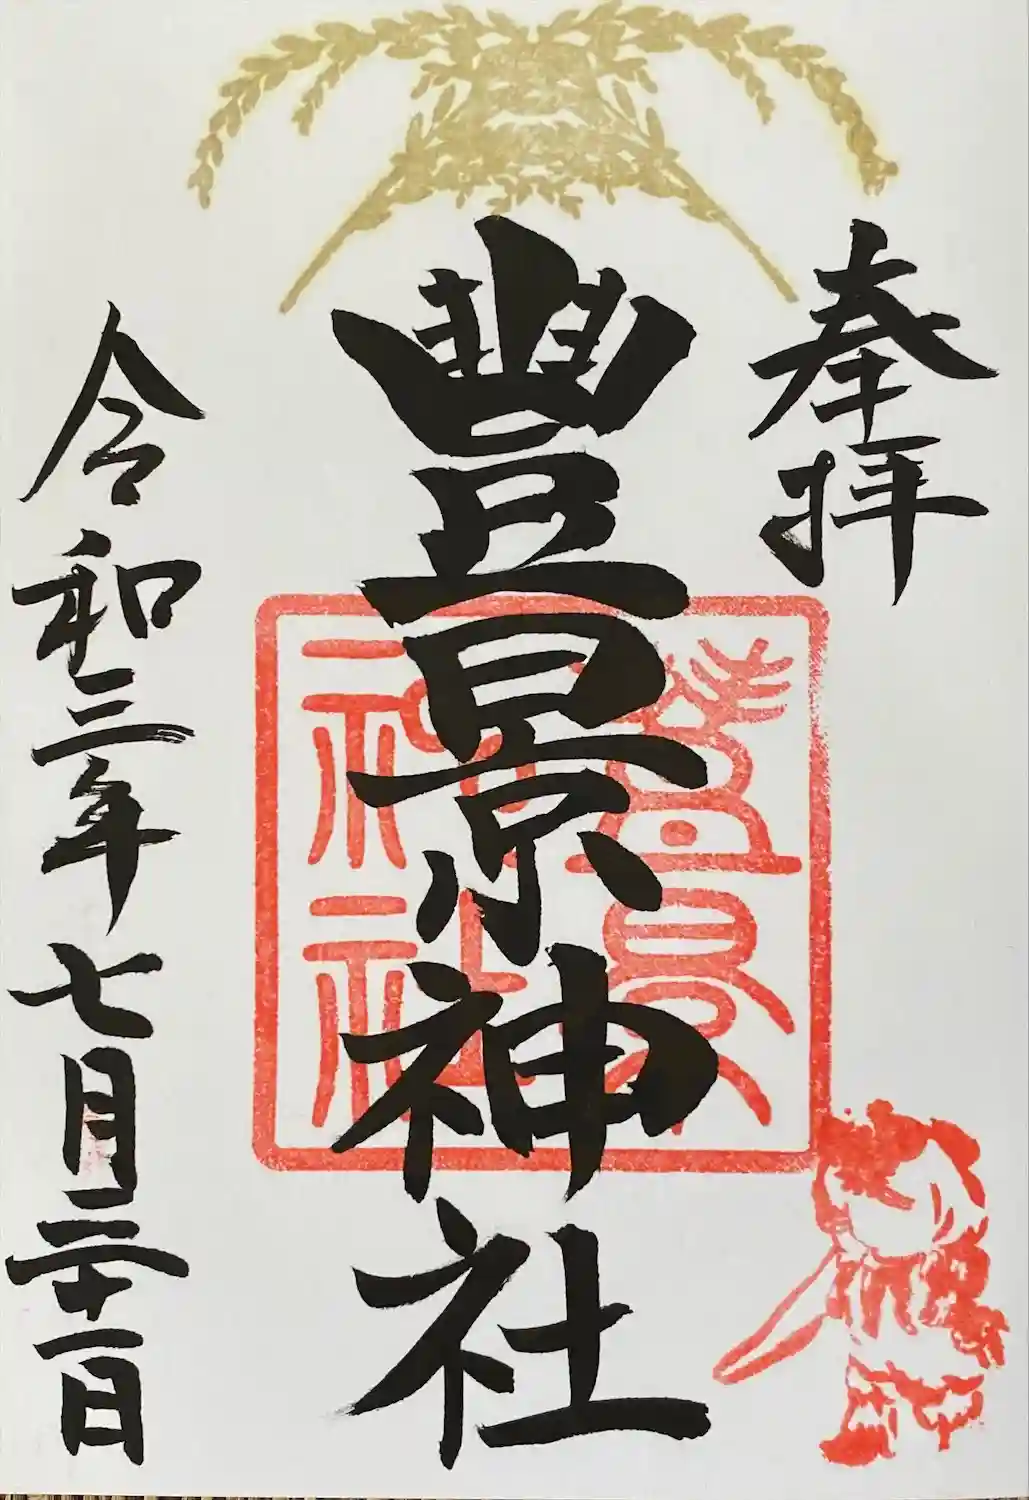 奉拝
豊景神社
豊景神社
令和三年七月二十一日